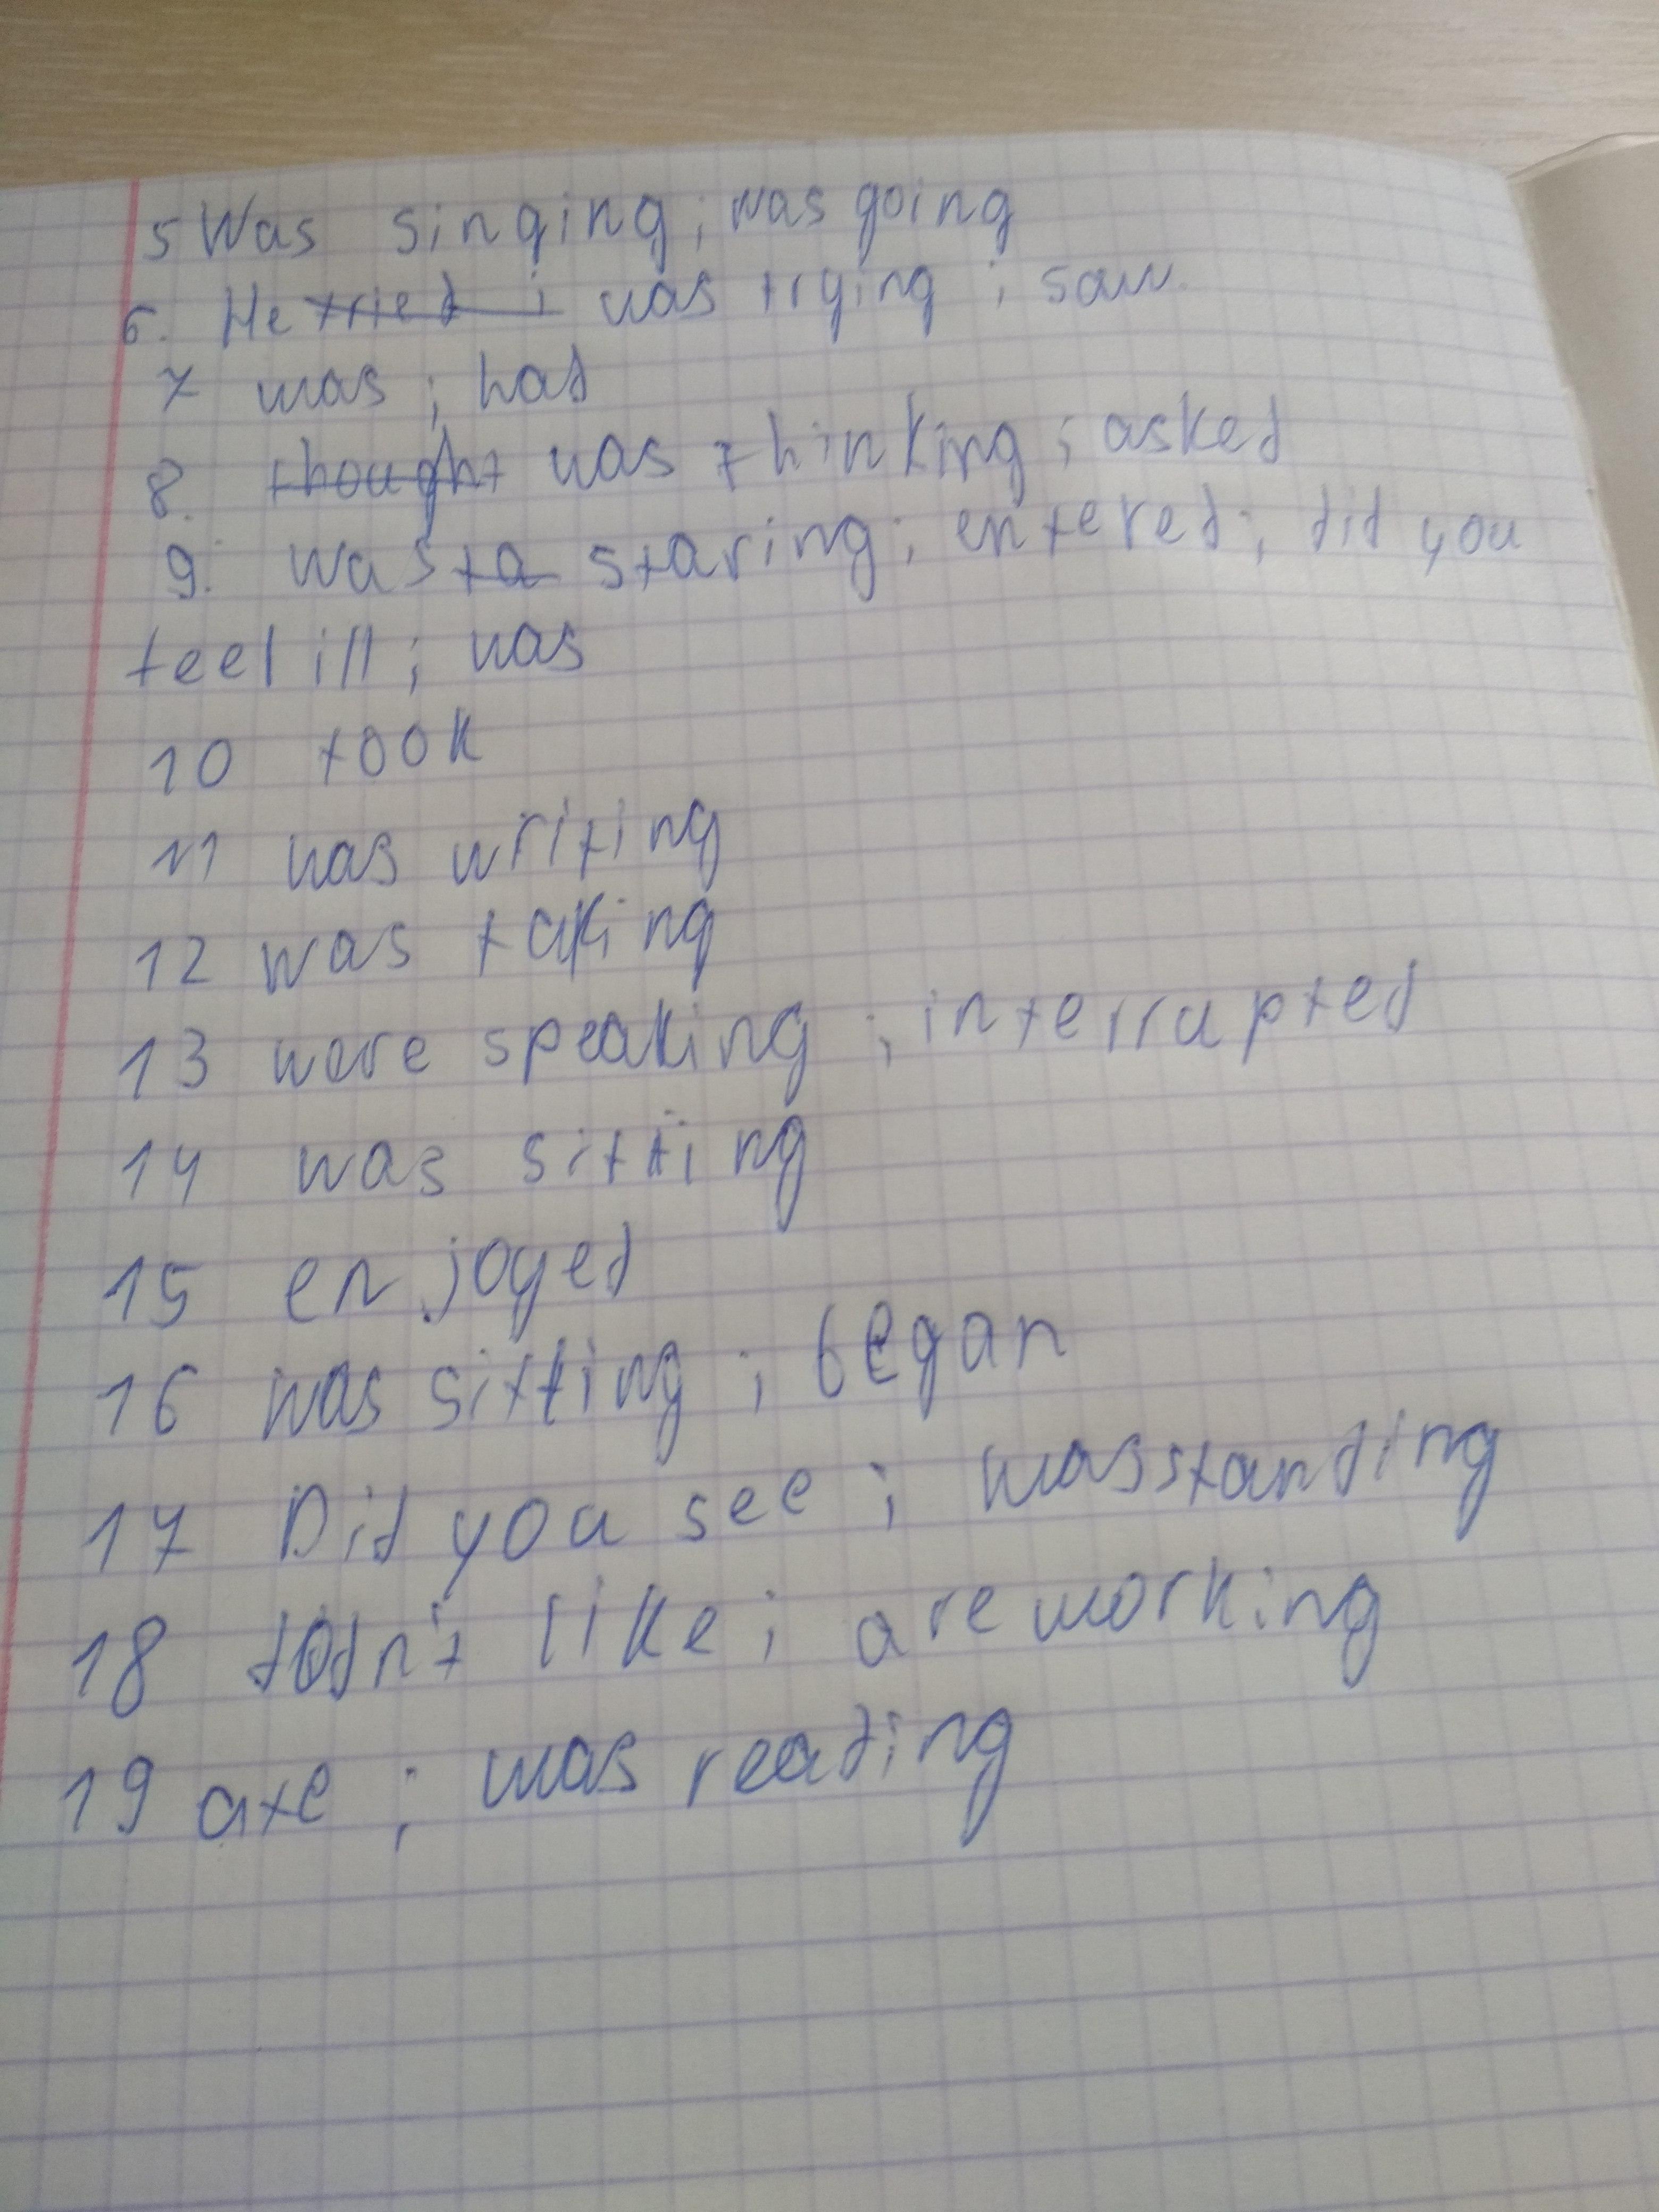 5 Was singing; was going
6. He tried ; was trying ; saw.
7 was ; had
8. thought was thinking ; asked
9. was ta staring; entered; did you
feel ill; was
10 took
11 was writing
12 was taking
13 were speaking ; interrupted
14 was sitting
15 enjoyed
16 was sitting ; began
17 Did you see ; was standing
18 didn't like ; are working
19 ate ; was reading